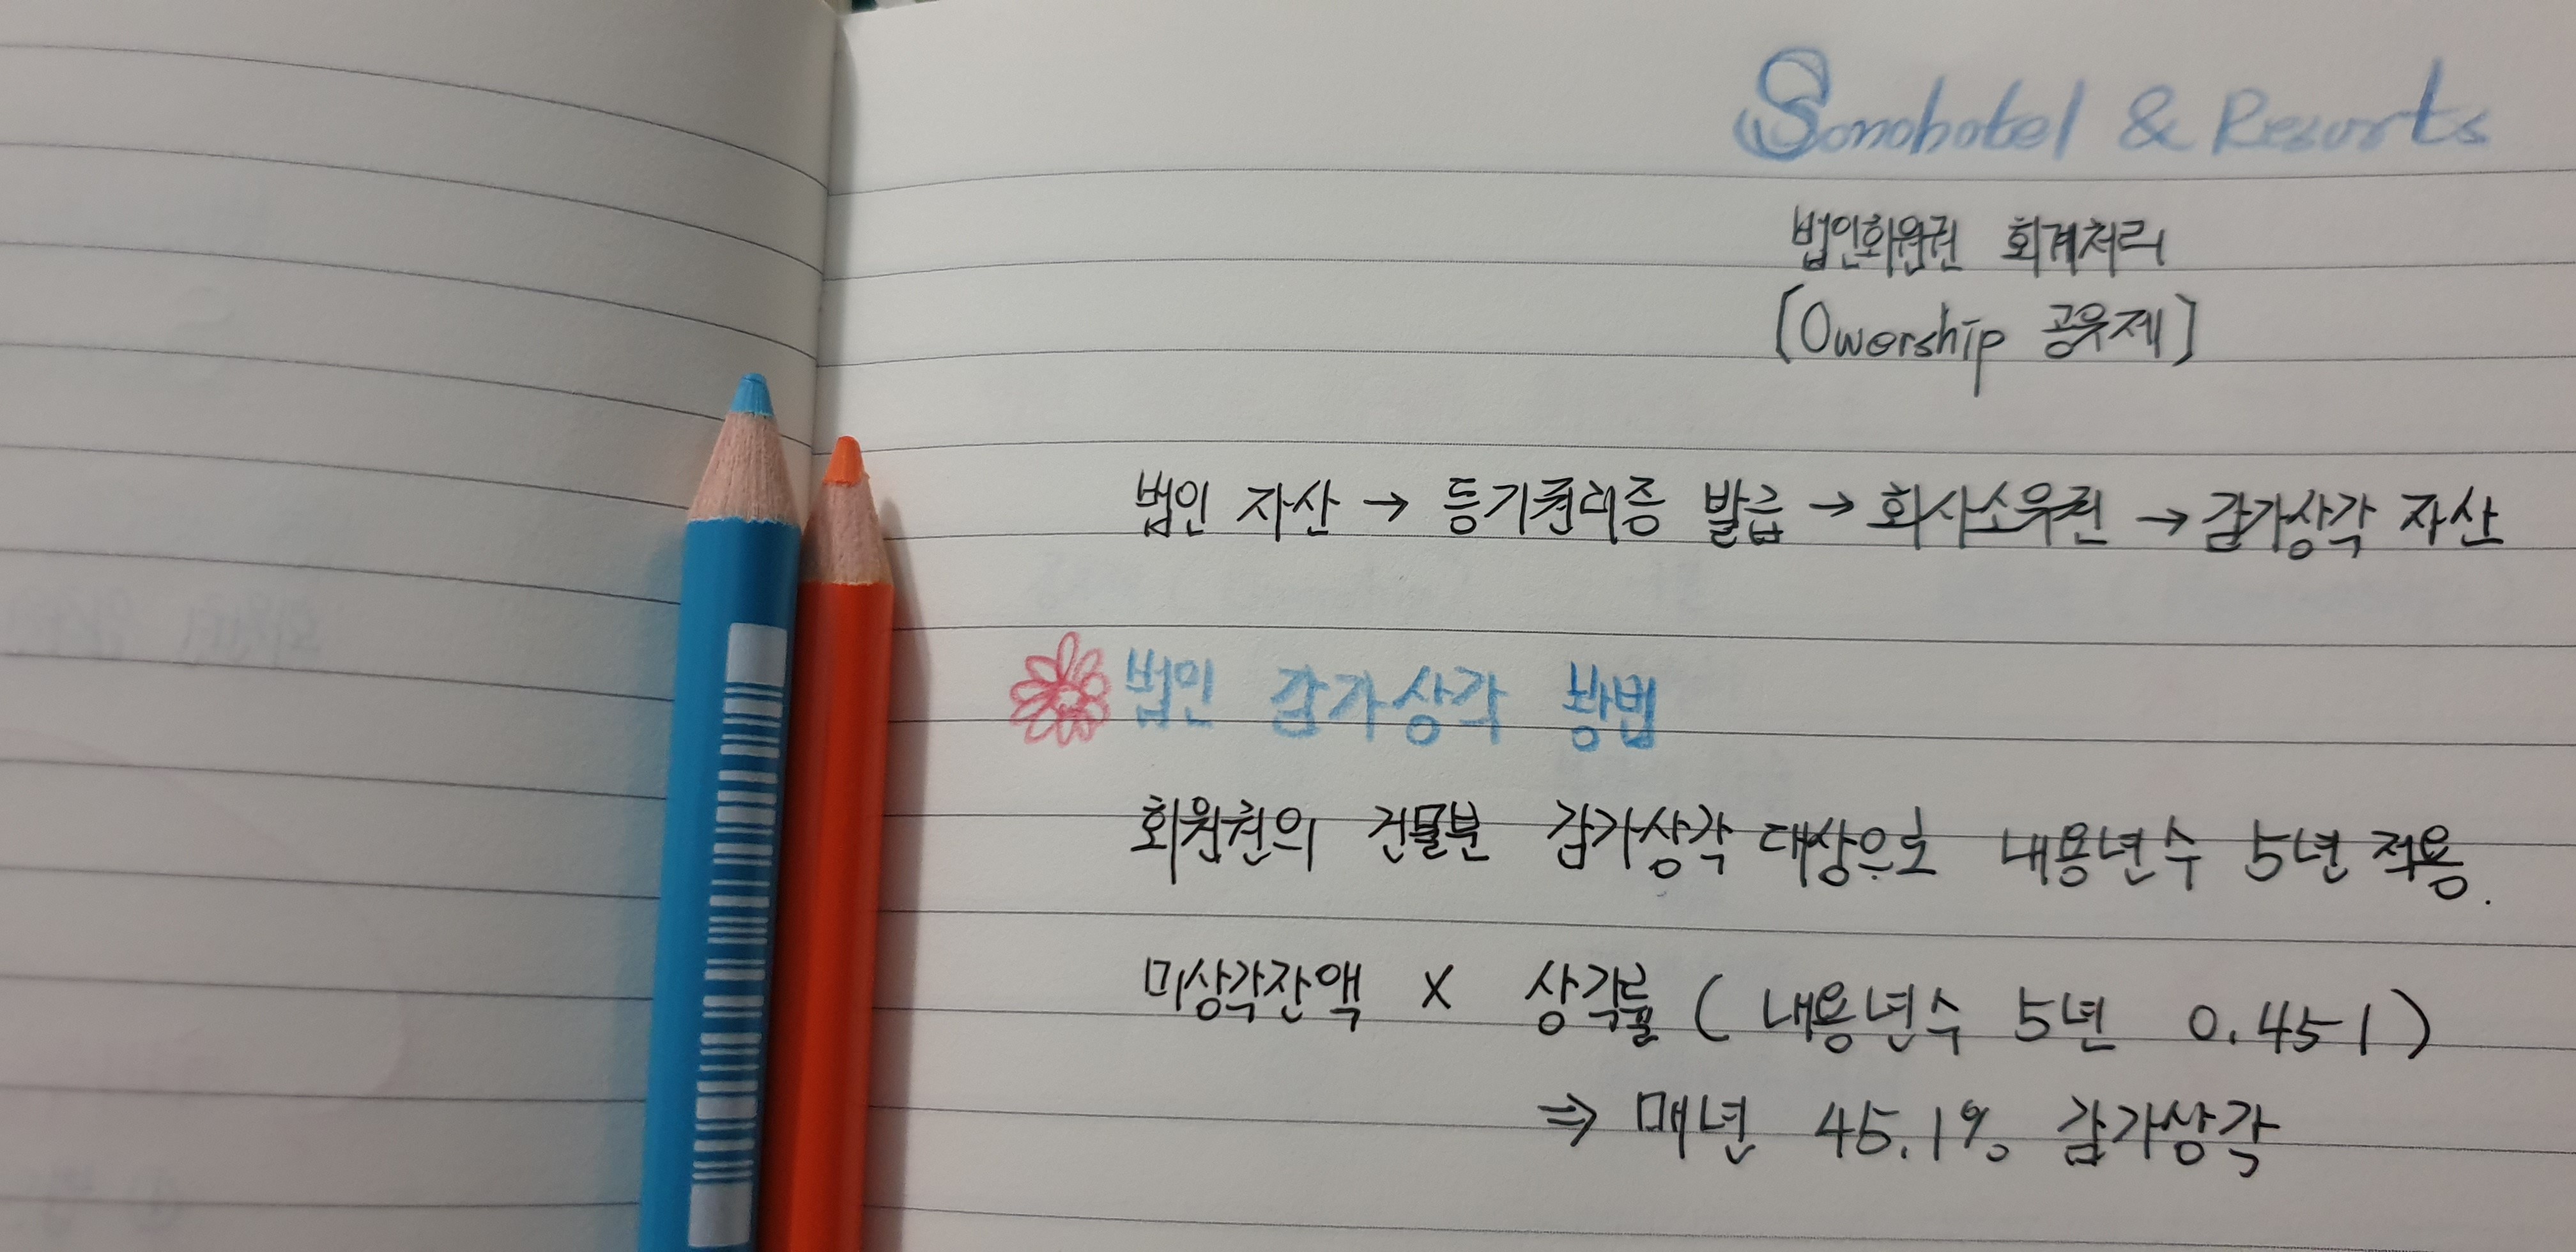 Sonohotel & Resorts
법인회원권 회계처리
[Oworship 공유제]
법인 자산 → 등기권리증 발급 → 회사소유권 → 감가상각 자산
법인 감가상각 방법
회원권의 건물분 감가상각 대상으로 내용년수 5년 적용.
미상각잔액 X 상각률 ( 내용년수 5년 0.451)
⇒ 매년 45.1% 감가상각